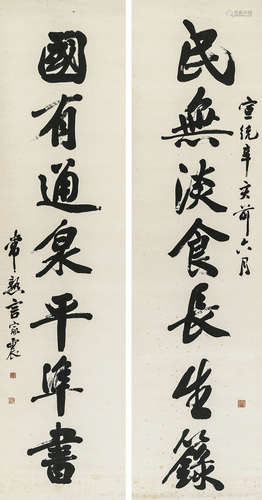 民無淡食長生籙
宣統辛亥前六月
國有通泉平準書
常熟言家震